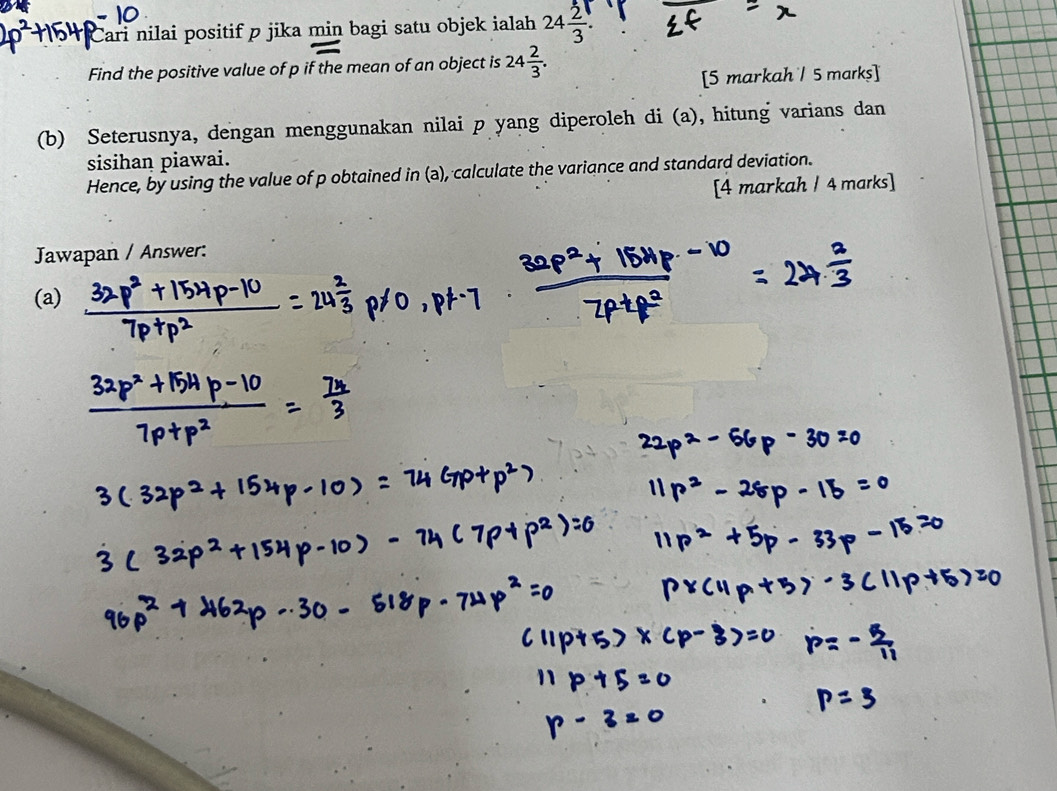 2p²+154p-10
Cari nilai positif p jika min bagi satu objek ialah 24 2/3.
Σf = x
Find the positive value of p if the mean of an object is 24 2/3.
[5 markah / 5 marks]
(b) Seterusnya, dengan menggunakan nilai p yang diperoleh di (a), hitung varians dan
sisihan piawai.
Hence, by using the value of p obtained in (a), calculate the variance and standard deviation.
[4 markah / 4 marks]
Jawapan / Answer:
(a) (32p²+154p-10)/(7p+p²) = 24 2/3 p≠0, p≠-7
(32p²+154p-10)/(7p+p²) = 24 2/3
(32p²+154p-10)/(7p+p²) = 74/3
3(32p²+154p-10) = 74(7p+p²)
3(32p²+154p-10) - 74(7p+p²)=0
96p²+462p-30-518p-74p²=0
22p²-56p-30=0
11p²-28p-15=0
11p²+5p-33p-15=0
p×(11p+5)-3(11p+5)=0
(11p+5)×(p-3)=0 p=-5/11
11p+5=0
p-3=0 p=3